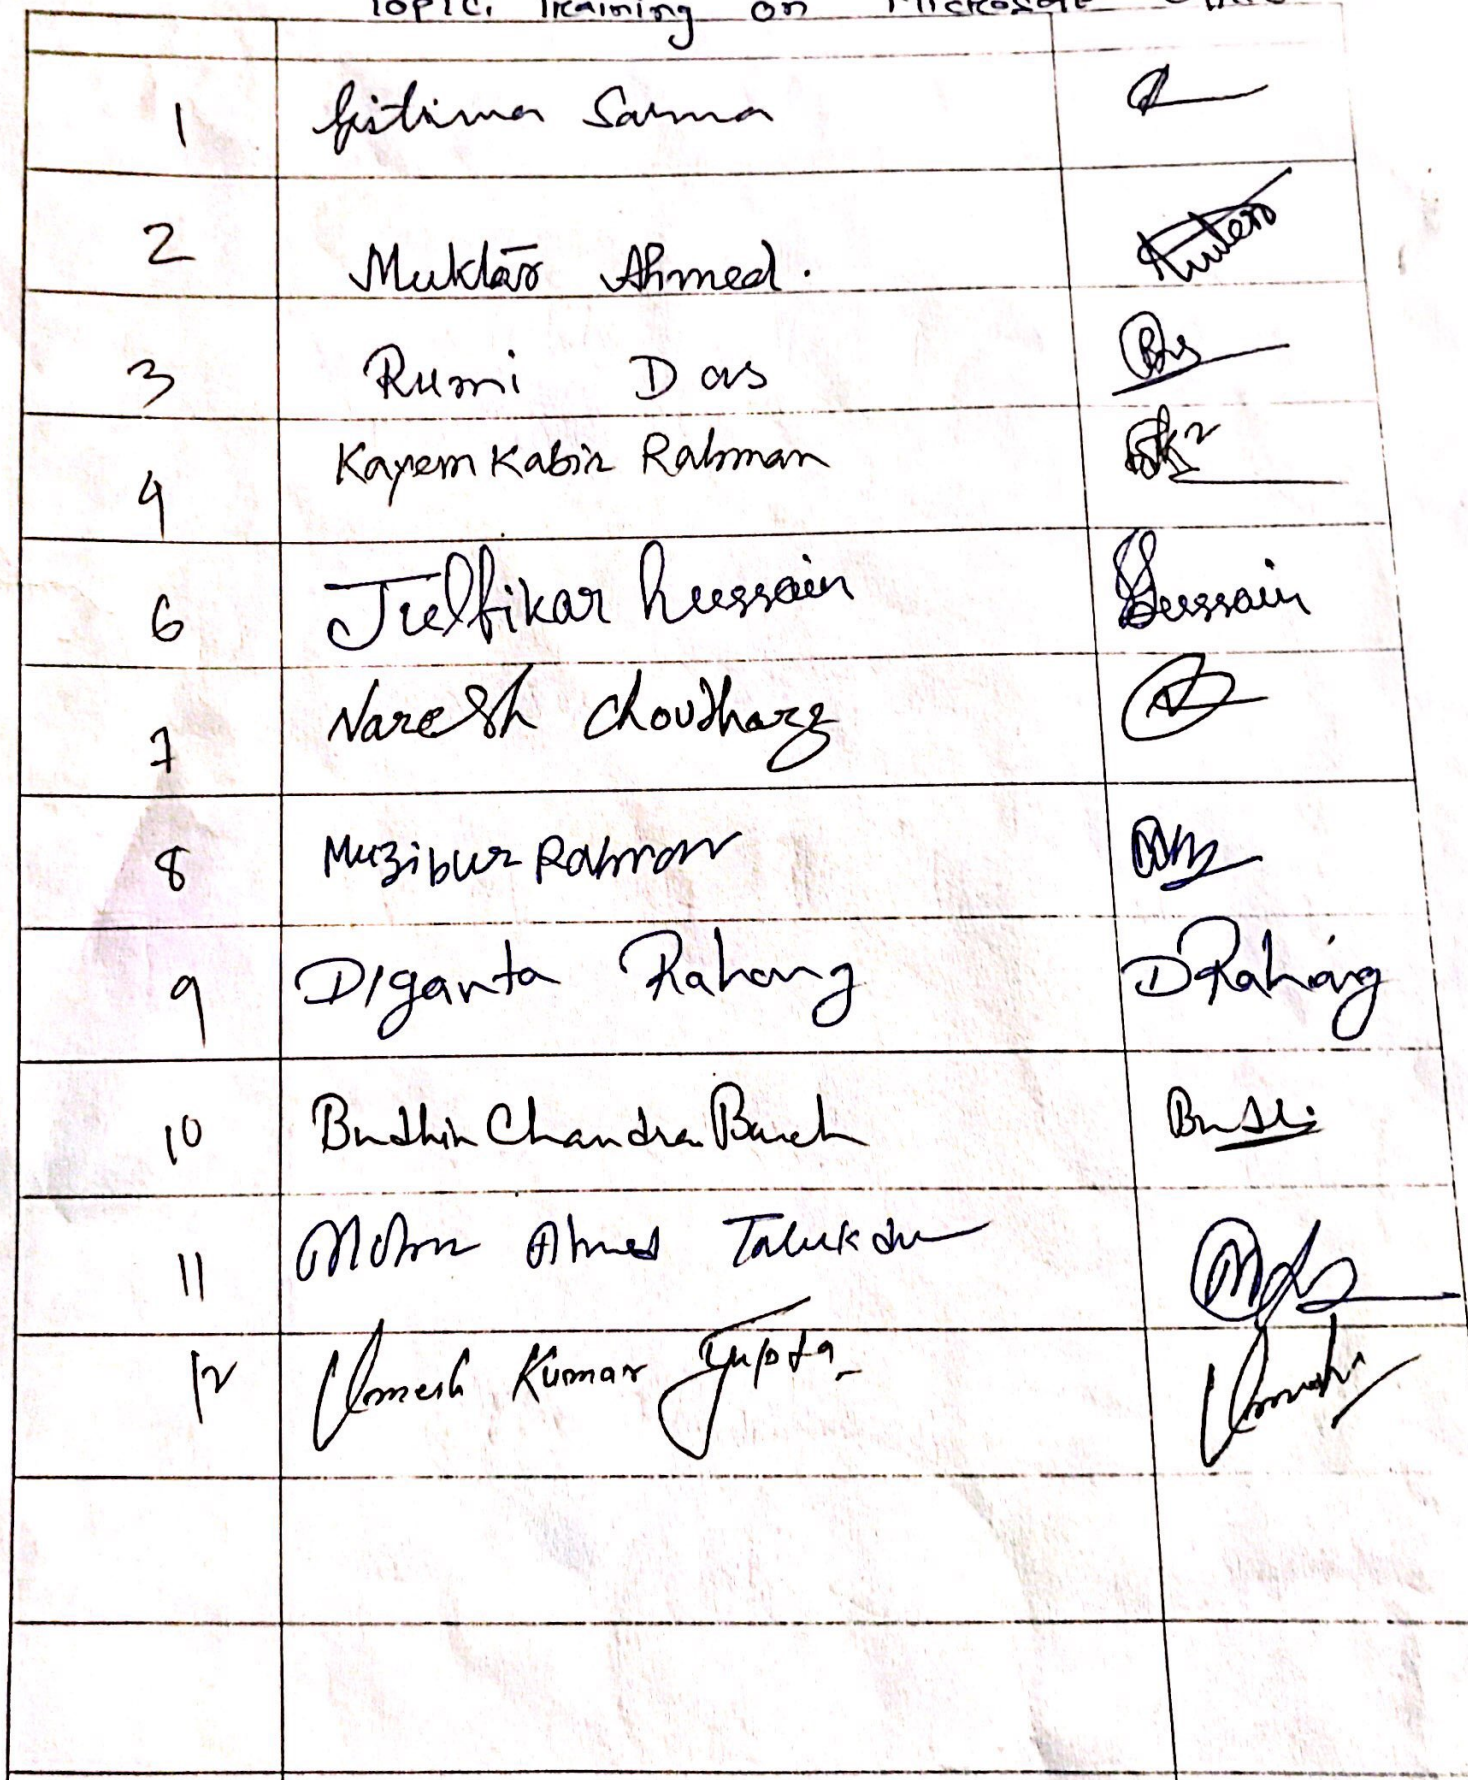 Topic: Training on Microsoft
1 Gitima Sarma
2 Muktar Ahmed.
3 Rumi Das
4 Kayem Kabir Rahman
6 Julfikar Hussain Hussain
7 Naresh Choudhary
8 Muzibur Rahman
9 Diganta Rahang DRahang
10 Budhin Chandra Budhi
11 Ahmed Talukdar
12 Umesh Kumar Gupta Umesh